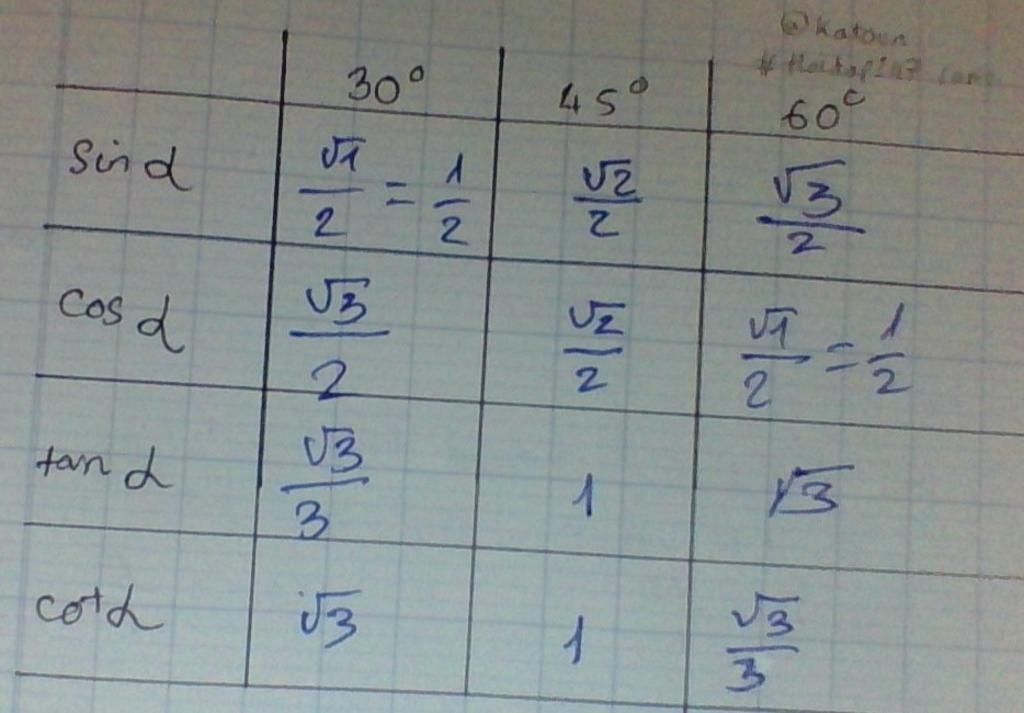 @Katoun
30° 45° 60°
sin α √1/2 = 1/2 √2/2 √3/2
cos α √3/2 √2/2 √1/2 = 1/2
tan α √3/3 1 √3
cot α √3 1 √3/3